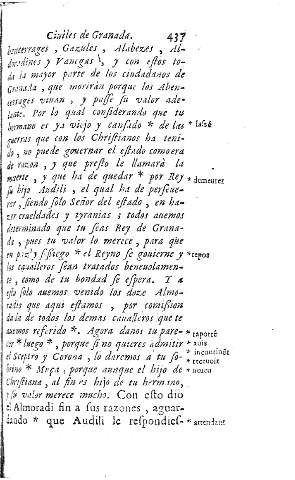 Civiles de Granada. 437
benterrages, Gazules, Alabezes, Al-
doradines y Vanegas, y con estos to-
da la mayor parte de los ciudadanos de
Granada, que morirán porque los Aben-
cerrages vivan, y passe su valor ade-
lante. Por lo qual considerando que tu
hermano es ya viejo y cansado * de las
guerras que con los Christianos ha teni-
do, no puede governar el estado como era
de razon, y que presto le llamarà la
muerte, y que ha de quedar * por Rey
su hijo Audili, el qual ha de perseve-
rar, siendo sólo Señor del estado, en ha-
zer crueldades y tyranias; todos avemos
determinado que tu seas Rey de Grana-
da, pues tu valor lo merece, para que
en paz y sossiego * el Reyno se govierne y
los cavalleros sean tratados benevolamen-
te, como de tu bondad se espera. Y a
esto sólo avemos venido los doze Almo-
radis que aqui estamos, por comission
dada de todos los demas cavalleros que te
avemos referido *. Agora danos tu pare-
cer * luego *, porque si no quieres admitir
el Sceptro y Corona, lo daremos a tu so-
brino * Muça; porque aunque el hijo de
Christiana, al fin es hijo de tu hermano,
y su valor merece mucho. Con esto dio
el Almoradi fin a sus razones, aguar-
dando * que Audili le respondies-
* lassé
* demeurer
* repos
* raporté
* avis
* incontinent
* neveu
* attendant